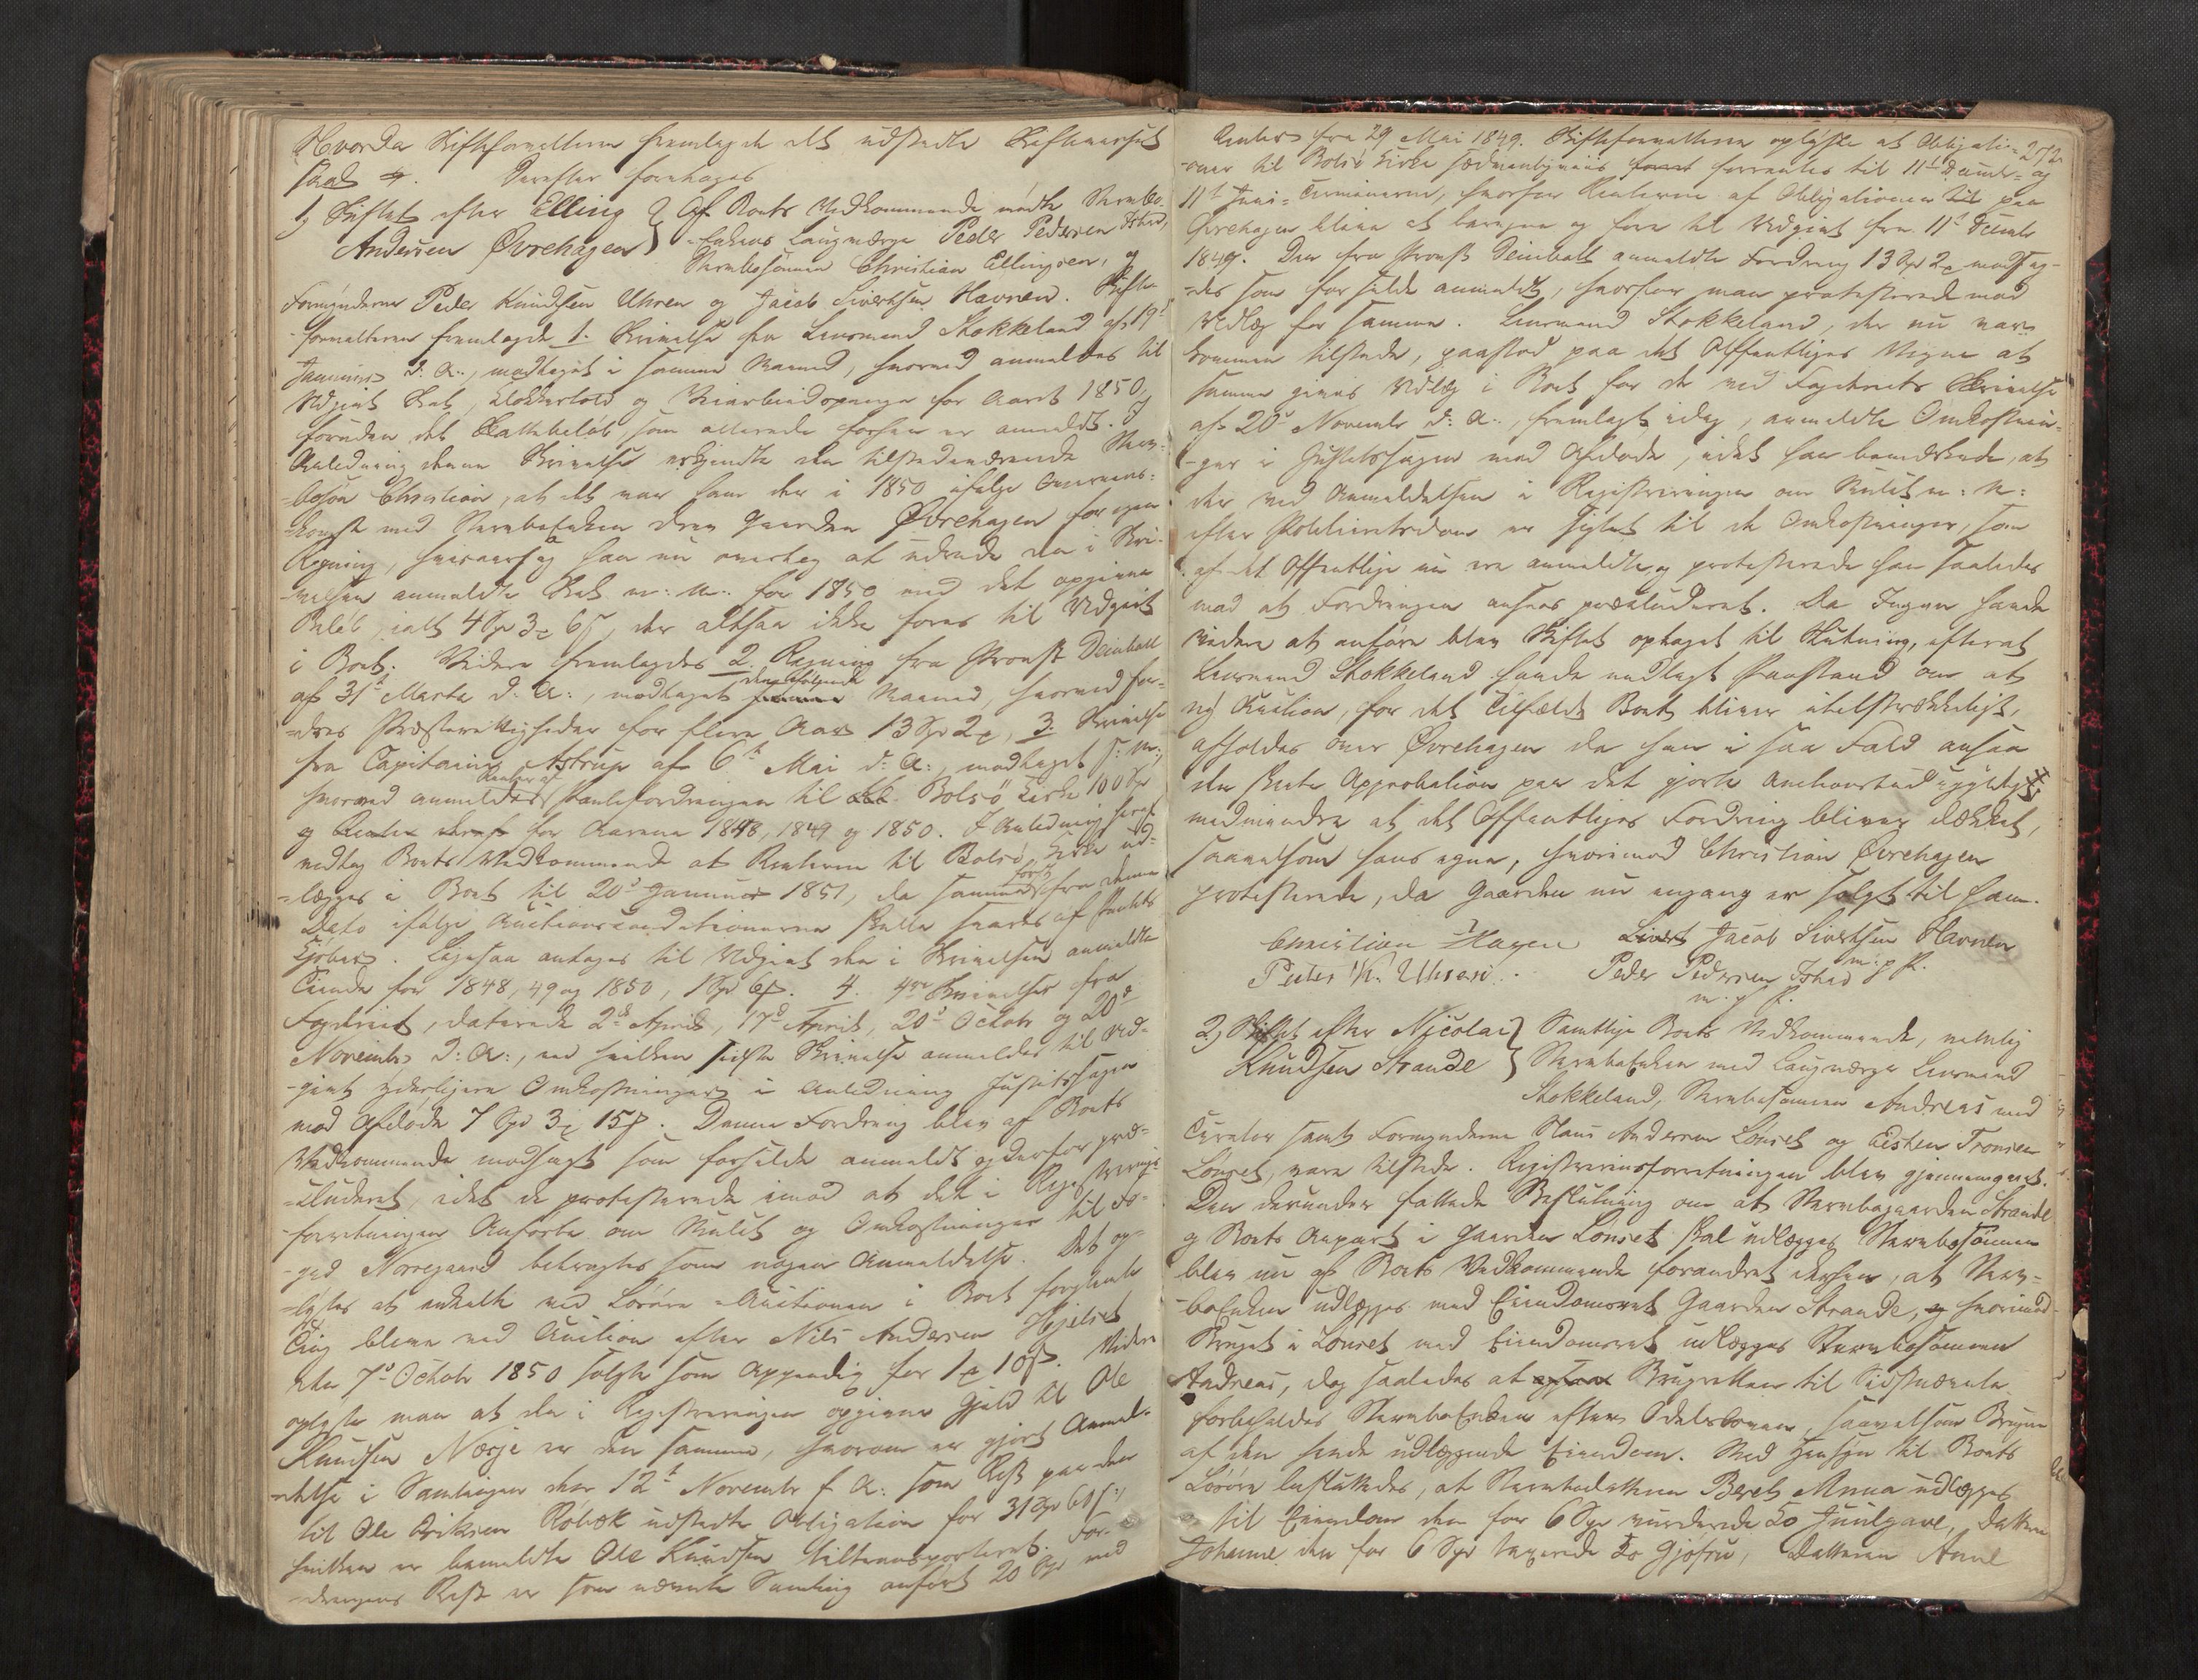 Hvorda Skifteforvalteren fremlagde det udstedte Skiftevarsel
saal.        Derefter foretoges
1, Skiftet efter Elling } Af Boets Vedkommende mødte Stervbo-
Andersen Øvrehagen } -Enkens Laugværge Peder Pedersen Istad,
Stervbosønnen Christian Ellingsen, og
Formynderne Peder Knudsen Uhren og Jacob Sivertsen Havnen. Skifte-
-forvalteren fremlagde 1. Skrivelse fra Lensmand Stokkeland af 19d
Januar d: A:, modtaget i samme Maaned, hvorved anmeldes til
Udgivt Skat, Klokkertold og Veiarbeidspenge for Aaret 1850,
foruden det Skattebeløb, som allerede forhen er anmeldt. I
Anledning denne Skrivelse erkjendte den tilstedeværende Sterv-
-bosøn Christian, at det var ham der i 1850 ifølge Overeens-
-komst med Stervboenken drev Gaarden Øvrehagen for egen
Regning, hvisaarsag han nu overtog at udrede den i Skri-
-velsen anmeldte Skat m: m: for 1850 med det opgivne
Beløb, ialt 4 Spd 3 6 s, der altsaa ikke føres til Udgivt
i Boet. Videre fremlagdes 2. Regning fra Provst Deinboll
af 31t Marts d: A:, modtaget den følgende Maaned, hvorved for-
-dres Præsterettigheder for flere Aar 13 Spd 2, 3. Skrivelse
fra Capitaine Astrup af 6te Mai d: A:, modtaget s: M:,
hvorved anmeldes Renter af Pantefordringen til Bolsø Kirke 100 Spd
og Renter deraf for Aarene 1848, 1849 og 1850. I Anledning heraf
vedtog Boets Vedkommende at Renterne til Bolsø Kirke ud-
-lægges i Boet til 20d Januar 1851, da samme først fra denne
Dato ifølge Auctionsconditionerne skulle svares af Stedets
Kjøber. Ligesaa antages til Udgivt den i Skrivelsen anmeldte
Tiende for 1848, 49 og 1850, 1 Spd 6 s. 4. 4re Skrivelser fra
Fogderiet, daterede 2d April, 17d April, 20d Octobr og 20d
Novembr d: A:, ved hvilken sidste Skrivelse anmeldes til Ud-
-givt yderligere Omkostninger i Anledning Justitssagen
mod Afdøde 7 Spd 3 15 s. Denne Fordring blev af Boets
Vedkommende modsagt som forsilde anmeldt og derfor præ-
-cluderet, idet de protesterede imod at det i Registrerings-
-forretningen Anførte om Mulct og Omkostninger til Fo-
-ged Norregaard betragtes som nogen Anmeldelse. Det op-
-lystes at enkelte ved Løsøre-Auctionen i Boet forglemte
Ting bleve ved Auction efter Nils Andersen Hjelset
den 7d Octobr 1850 solgte som Appendix for 1 10 s. Videre
oplyste man at den i Registreringen opgivne Gjæld til Ole
Knudsen Nesje er den samme, hvorom er gjort Anmel-
-delse i Samlingen den 12t Novembr f. A: som Rest paa den
til Ole Eriksen Røbæk udstedte Obligation for 31 Spd 60 s,
hvilken er bemeldte Ole Knudsen tiltransporteret. For-
-dringens Rest er som nævnte Samling anført 20 Spd med
Renter fra 29 Mai 1849. Skifteforvalteren oplyste at Obligati- 272
-oner til Bolsø Kirke sædvanligviis forrentes til 11te Decembr- og
11te Juni-Terminerne, hvorfor Renterne af Obligationen paa
Øvrehagen blive at beregne og føre til Udgivt fra 11t Decembr
1849. Den fra Provst Deinboll anmeldte Fordring 13 Spd 2 modsag-
-des som forsilde anmeldt, hvorfor man protesterede mod
Udlæg for samme. Lensmand Stokkeland, der nu var
kommen tilstede, paastod paa det Offentliges Vegne at
samme gives Udlæg i Boet for de ved Fogderiets Skrivelse
af 20d Novembr d: A:, fremlagt idag, anmeldte Omkostnin-
-ger i Justitssagen mod Afdøde, idet han bemærkede, at
der ved Anmeldelsen i Registreringen om Mulct m: m:
efter Politiretsdom er sigtet til de Omkostninger, som
af det Offentlige nu ere anmeldte og protesterede han saaledes
mod at Fordringen ansees præcluderet. Da Ingen havde
videre at anføre blev Skiftet optaget til Slutning, efterat
Lensmand Stokkeland havde nedlagt Paastand om at
ny Auction, for det Tilfælde Boet bliver utilstrækkeligt,
afholdes over Øvrehagen da han i saa Fald ansaa
den skete Approbation paa det gjorte Auctionsbud ugyldigt
medmindre at det Offentliges Fordring bliver dækket,
saavelsom hans egen, hvorimod Christian Øvrehagen
protesterede, da Gaarden nu engang er solgt til ham.
Christian Hagen   Sivert Jacob Sivertsen Havnen
m. p. P.
Peder K. Uhren.   Peder Pedersen Istad
m. p. P.
2, Skiftet efter Nicolai } Samtlige Boets Vedkommende, nemlig
Knudsen Strande } Stervboenken med Laugværge Lensmand
Stokkeland, Stervbosønnen Andreas med
Curator samt Formynderne Claus Andersen Lønset og Eisten Tronsen
Lønset, vare tilstede. Registreringsforretningen blev gjennemgaaet.
Den derunder fattede Beslutning om at Stervbogaarden Strande
og Boets Anpart i Gaarden Lønset skal udlægges Stervbosønnen
blev nu af Boets Vedkommende forandret derhen, at Sterv-
-boenken udlægges med Eiendomsret Gaarden Strande, hvorimod
Bruget i Lønset med Eiendomsret udlægges Stervbosønnen
Andreas, dog saaledes at Brugretten til Sidstnævnte
forbeholdes Stervboenken efter Odelsloven, saavelsom Brugen
af den hende udlæggende Eiendom. Med Hensyn til Boets
Løsøre besluttedes, at Stervbodatteren Beret Anna udlægges
til Eiendom den for 6 Spd vurderede Ko Juulgave, Datteren
Johanne den for 6 Spd taxerede Ko Gjøfru, Datteren Anne